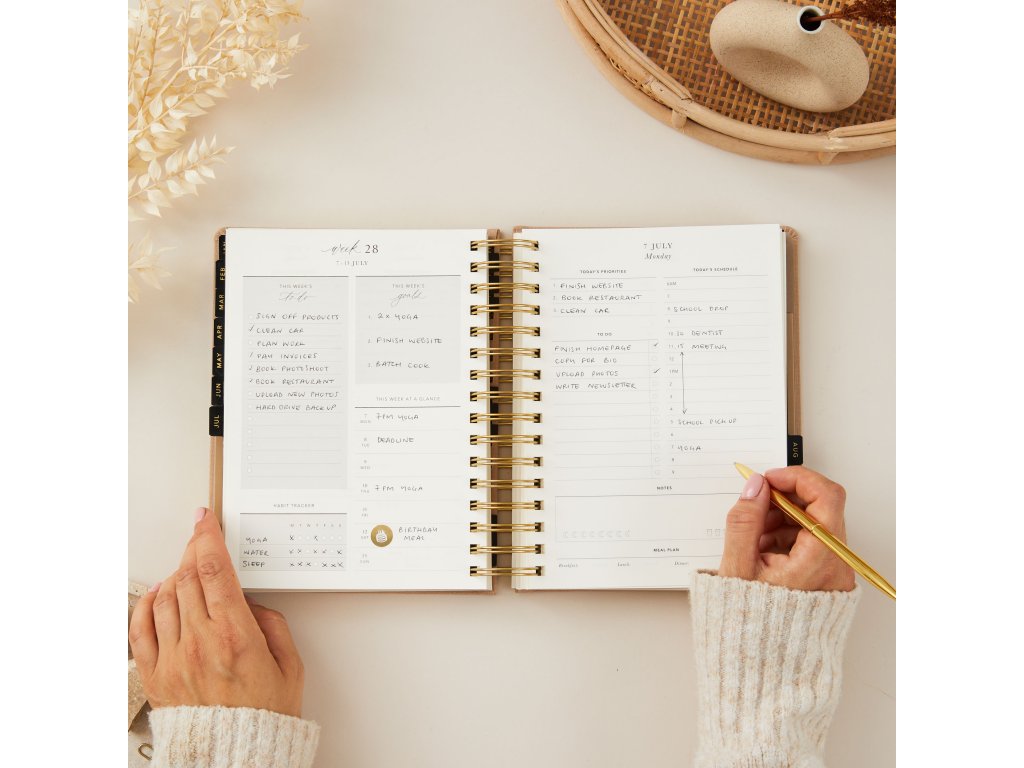 week 28
7-13 JULY
THIS WEEK'S
to do
SIGN OFF PRODUCTS
✓ CLEAN CAR
PLAN WORK
✓ PAY INVOICES
✓ BOOK PHOTOSHOOT
✓ BOOK RESTAURANT
UPLOAD NEW PHOTOS
HARD DRIVE BACK UP
THIS WEEK'S
goals
1. 2X YOGA
2. FINISH WEBSITE
3. BATCH COOK
THIS WEEK AT A GLANCE
7 MON 7PM YOGA
8 TUE DEADLINE
9 WED
10 THU 7 PM YOGA
11 FRI
12 SAT BIRTHDAY
MEAL
13 SUN
HABIT TRACKER
M T W T F S S
YOGA X X
WATER X X X X X
SLEEP X X X X X X
FEB
MAR
APR
MAY
JUN
JUL
7 JULY
Monday
TODAY'S PRIORITIES
1. FINISH WEBSITE
2. BOOK RESTAURANT
3. CLEAN CAR
TO DO
FINISH HOMEPAGE ✓
COPY FOR BIO
UPLOAD PHOTOS ✓
WRITE NEWSLETTER
TODAY'S SCHEDULE
6AM
7
8
9 SCHOOL DROP
10.30 DENTIST
11.15 MEETING
12
1PM
2
3
4
5 SCHOOL PICK UP
6
7 YOGA
8
9
NOTES
MEAL PLAN
Breakfast: Lunch: Dinner:
AUG